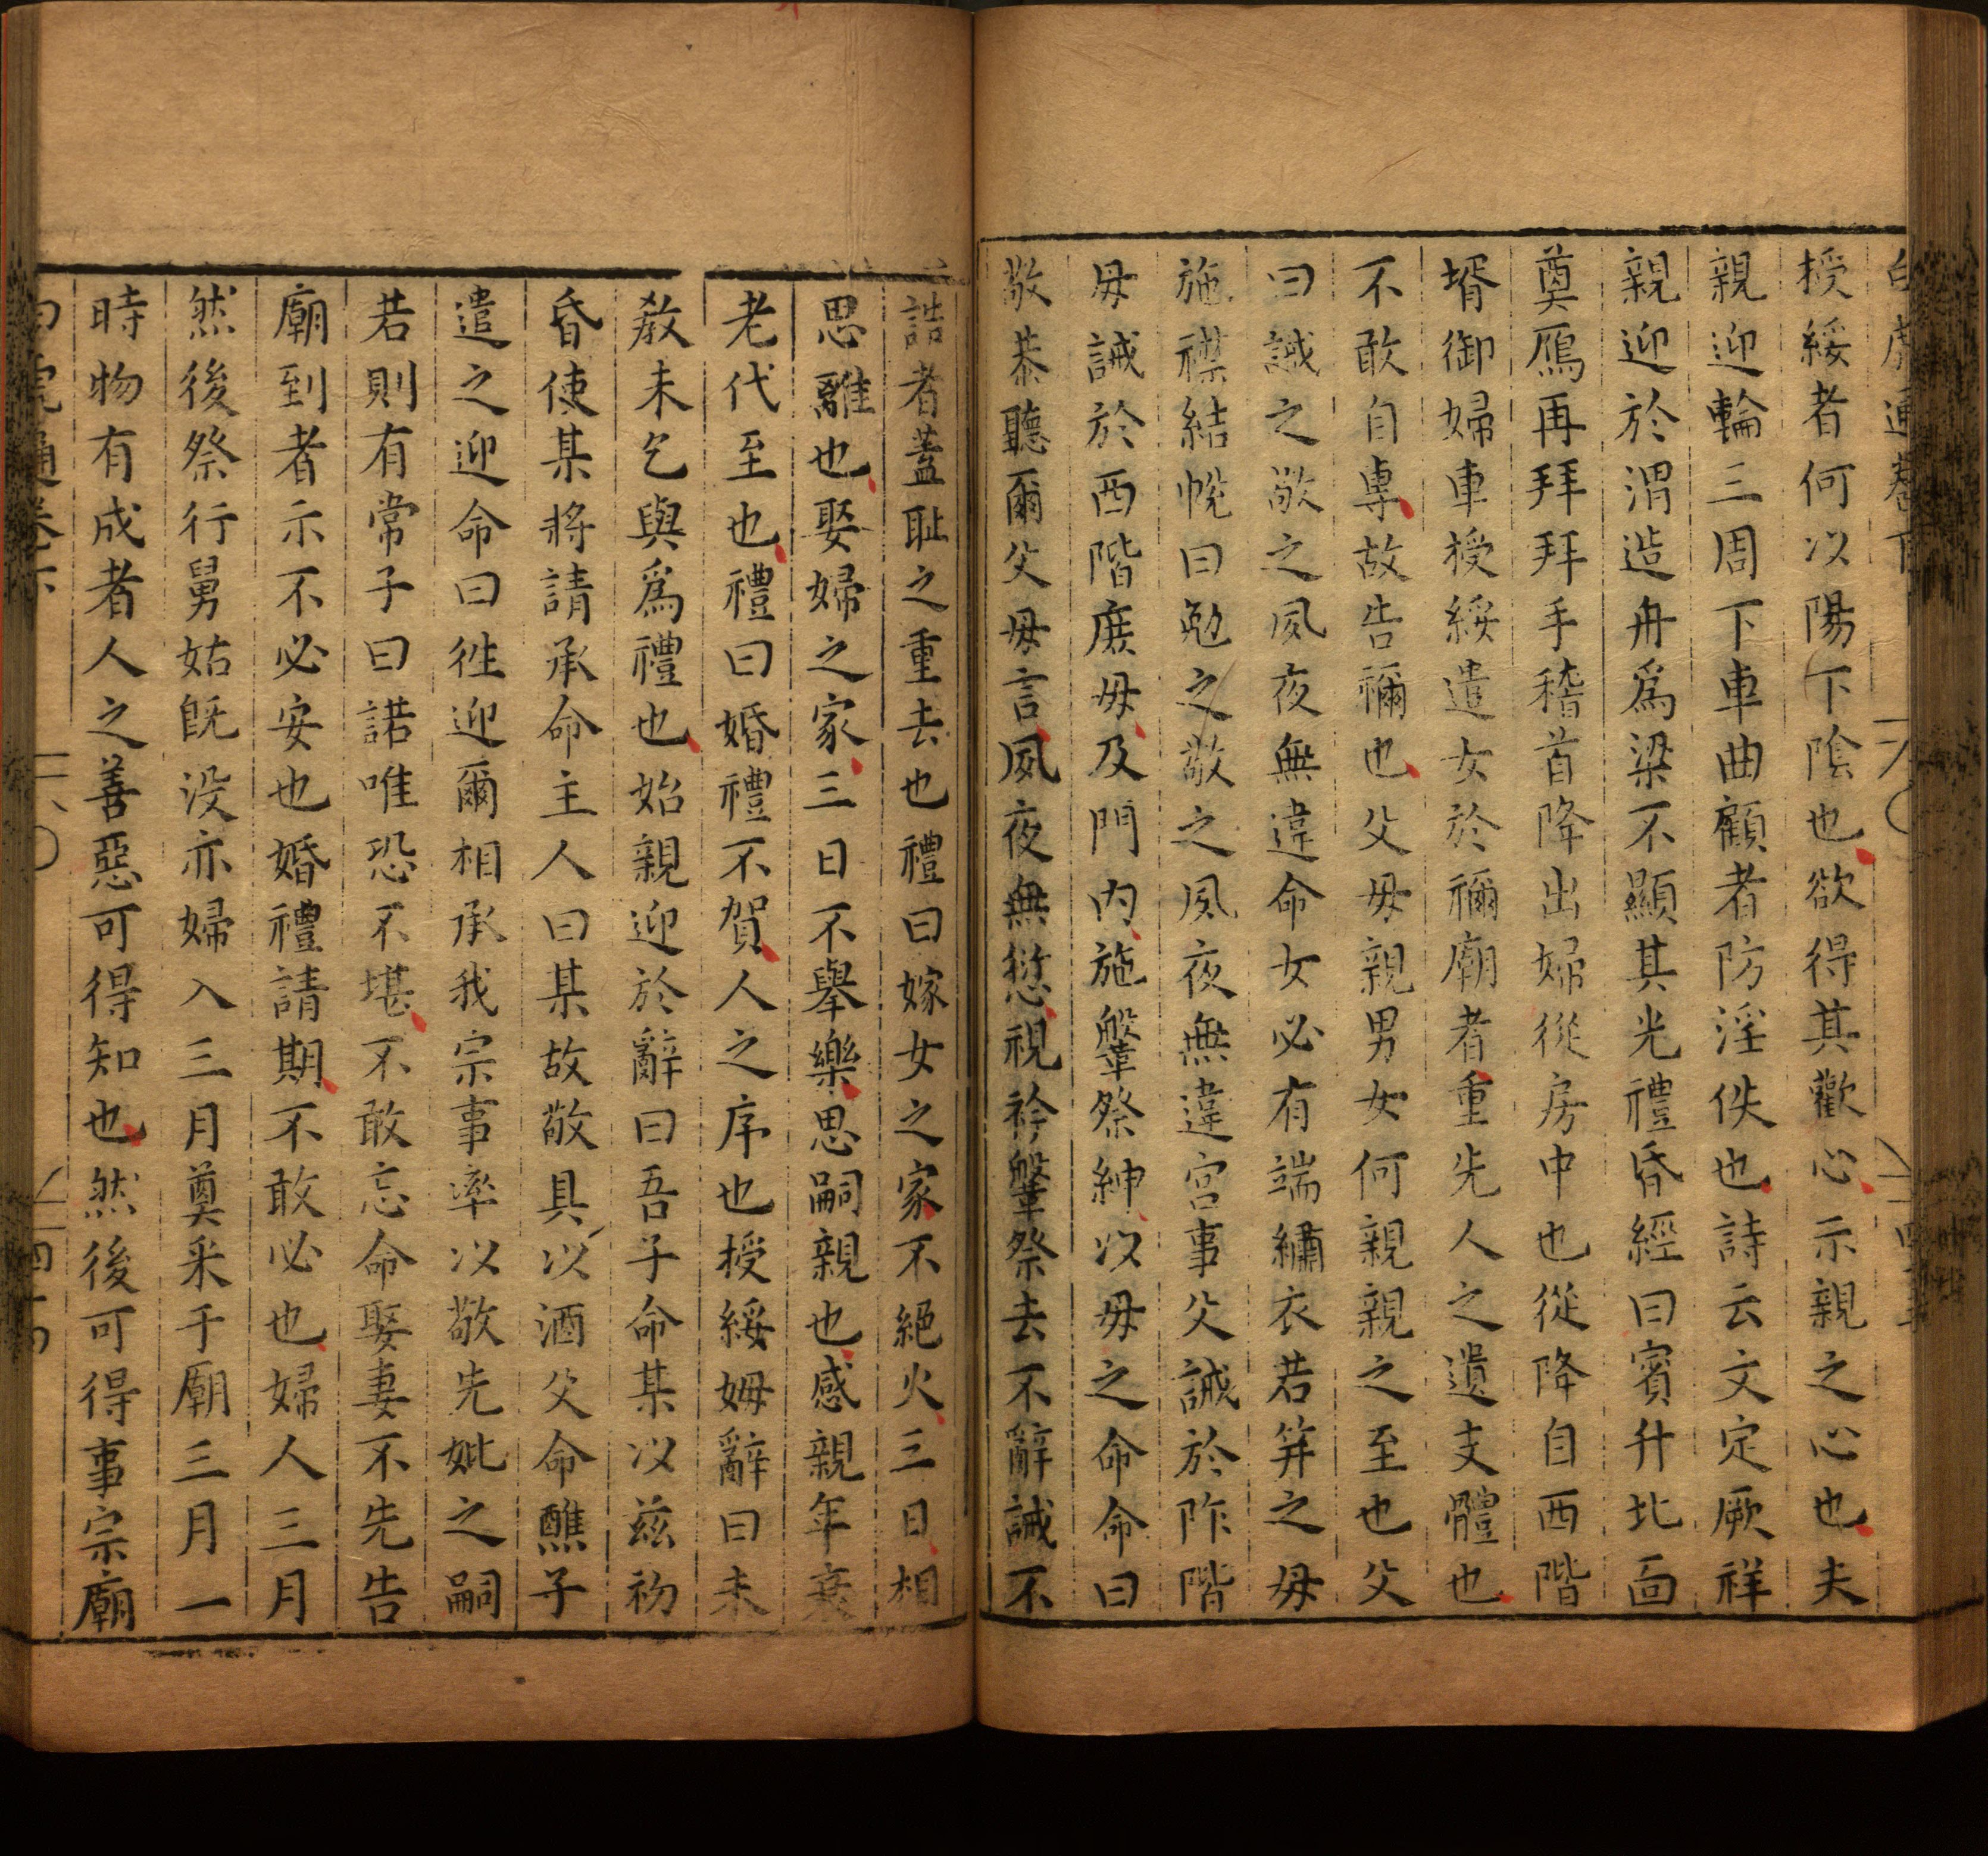 授綏者何以陽下陰也欲得其歡心示親之心也夫
親迎輪三周下車曲顧者防淫佚也詩云文定厥祥
親迎於渭造舟爲梁不顯其光禮昏經曰賓升北面
奠鴈再拜拜手稽首降出婦從房中也從降自西階
壻御婦車授綏遣女於禰廟者重先人之遺支體也
不敢自專故告禰也父母親男女何親親之至也父
曰誡之敬之夙夜無違命女必有端繡衣若笄之母
施襟結帨曰勉之敬之夙夜無違宮事父誡於阼階
母誡於西階庶母及門內施鞶祭紳以母之命命曰
敬恭聽爾父母言夙夜無愆視衿鞶祭去不辭誡不
誥者蓋耻之重去也禮曰嫁女之家不絕火三日相
思離也娶婦之家三日不舉樂思嗣親也感親年衰
老代至也禮曰婚禮不賀人之序也授綏姆辭曰未
敎未乞與爲禮也始親迎於辭曰吾子命某以兹初
昏使某將請承命主人曰某故敬具以酒父命醮子
遣之迎命曰徃迎爾相承我宗事率以敬先妣之嗣
若則有常子曰諾唯恐不堪不敢忘命娶妻不先告
廟到者示不必安也婚禮請期不敢必也婦人三月
然後祭行舅姑旣没亦婦入三月奠采于廟三月一
時物有成者人之善惡可得知也然後可得事宗廟